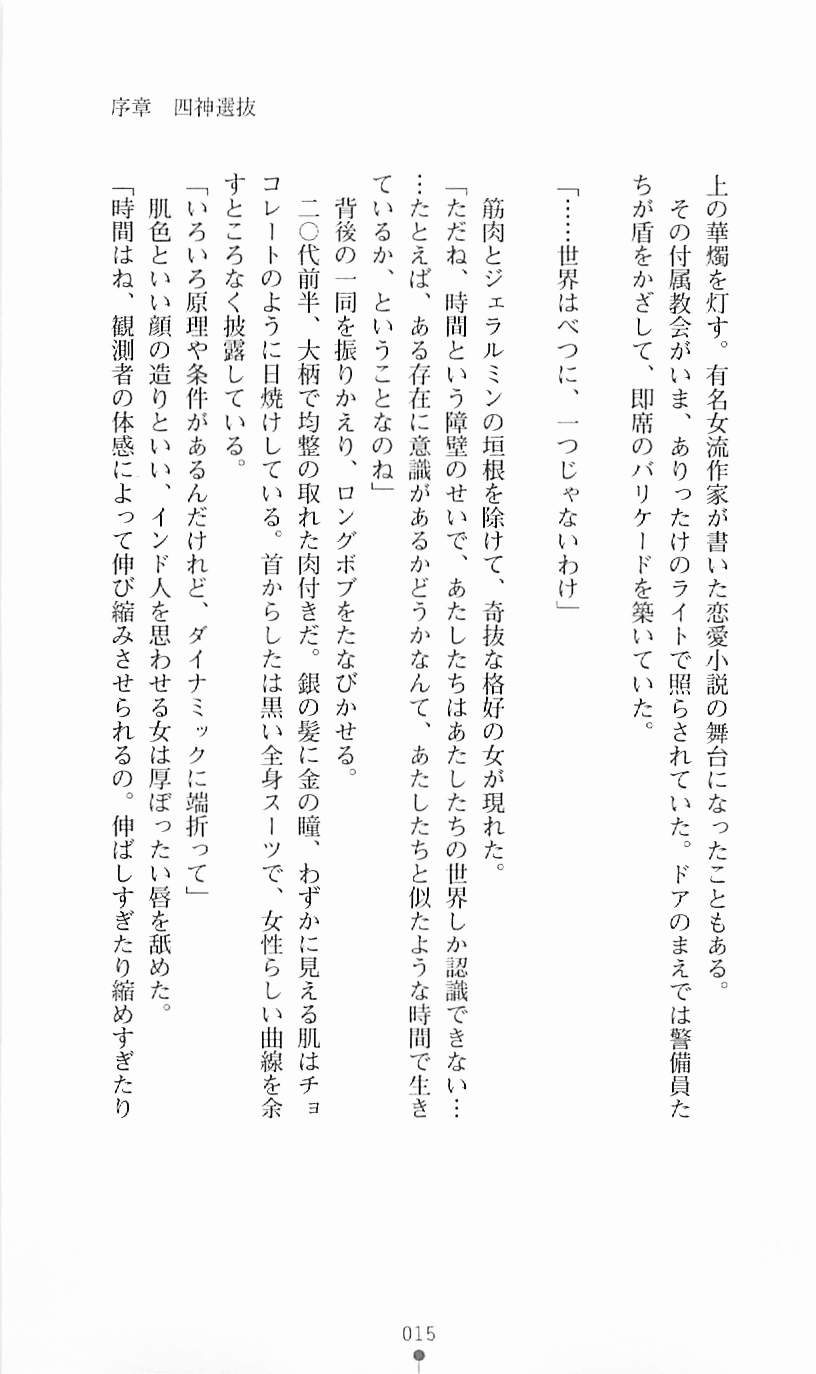 序章　四神選抜
上の華燭を灯す。有名女流作家が書いた恋愛小説の舞台になったこともある。
　その付属教会がいま、ありったけのライトで照らされていた。ドアのまえでは警備員た
ちが盾をかざして、即席のバリケードを築いていた。
「……世界はべつに、一つじゃないわけ」
　筋肉とジェラルミンの垣根を除けて、奇抜な格好の女が現れた。
「ただね、時間という障壁のせいで、あたしたちはあたしたちの世界しか認識できない…
…たとえば、ある存在に意識があるかどうかなんて、あたしたちと似たような時間で生き
ているか、ということなのね」
　背後の一同を振りかえり、ロングボブをたなびかせる。
　二〇代前半、大柄で均整の取れた肉付きだ。銀の髪に金の瞳、わずかに見える肌はチョ
コレートのように日焼けしている。首からしたは黒い全身スーツで、女性らしい曲線を余
すところなく披露している。
「いろいろ原理や条件があるんだけれど、ダイナミックに端折って」
　肌色といい顔の造りといい、インド人を思わせる女は厚ぼったい唇を舐めた。
「時間はね、観測者の体感によって伸び縮みさせられるの。伸ばしすぎたり縮めすぎたり
015